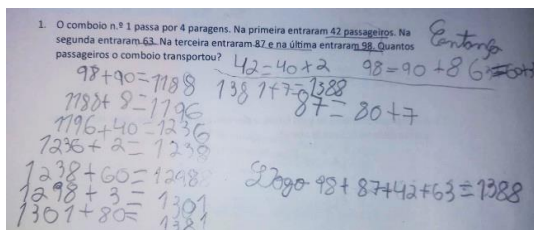 1. O comboio n.º 1 passa por 4 paragens. Na primeira entraram 42 passageiros. Na
segunda entraram 63. Na terceira entraram 87 e na última entraram 98. Quantos
passageiros o comboio transportou?
42=40+2 98=90+8
98+90=1188
1381+7=1388
87=80+7
1188+8=1196
1196+40=1236
1236+2=1238
1238+60=1298
1298+3=1301
1301+80=1381
Logo 98+87+42+63=1388